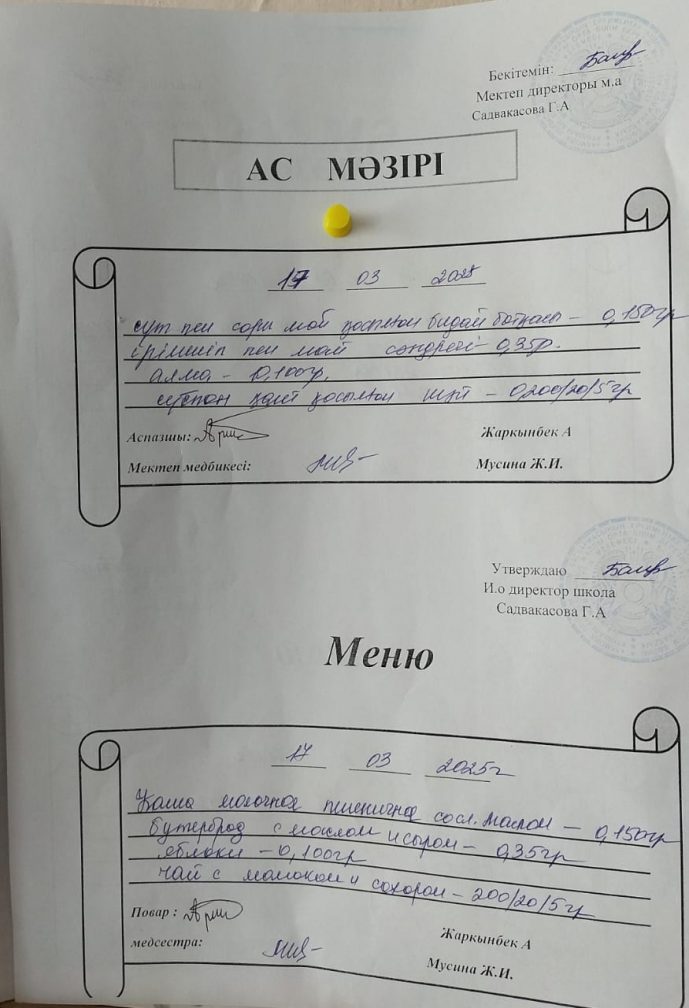 Бекітемін:
Мектеп директоры м.а
Садвакасова Г.А
АС МӘЗІРІ
17 03 2025
сүт пен сары май қосылған бидай ботқасы - 0,150гр
ірімшік пен май сэндвичі - 0,35гр.
алма - 0,100гр.
сүтпен қант қосылған шәй - 0,200/20/5гр
Аспазшы: Жаркынбек А
Мектеп медбикесі: Мусина Ж.И.
Утверждаю
И.о директор школа
Садвакасова Г.А
Меню
17 03 2025г
Каша молочная пшеничная со сл. маслом - 0,150гр
бутерброд с маслом и сыром - 0,35гр
яблоки - 0,100гр
чай с молоком и сахаром - 200/20/5гр
Повар : Жаркынбек А
медсестра: Мусина Ж.И.